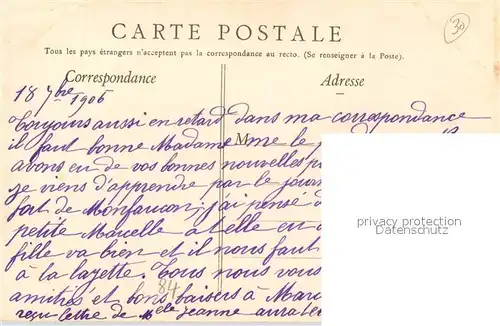 CARTE POSTALE
30
Tous les pays étrangers n'acceptent pas la correspondance au recto. (Se renseigner à la Poste).
Correspondance
Adresse
18 7bre 1906
Toujours aussi en retard dans ma correspondance
il faut bonne Madame me le
M
avons eu de vos bonnes nouvelles
je viens d'apprendre par le jour
fort de Monfaucon; j'ai pensé
petite Marcelle a-t-elle eu
fille va bien et il nous faut
à la layette. Tous nous vous
84
amitiés et bons baisers à Marc
reçu lettre de Melle Jeanne aura
privacy protection
Datenschutz